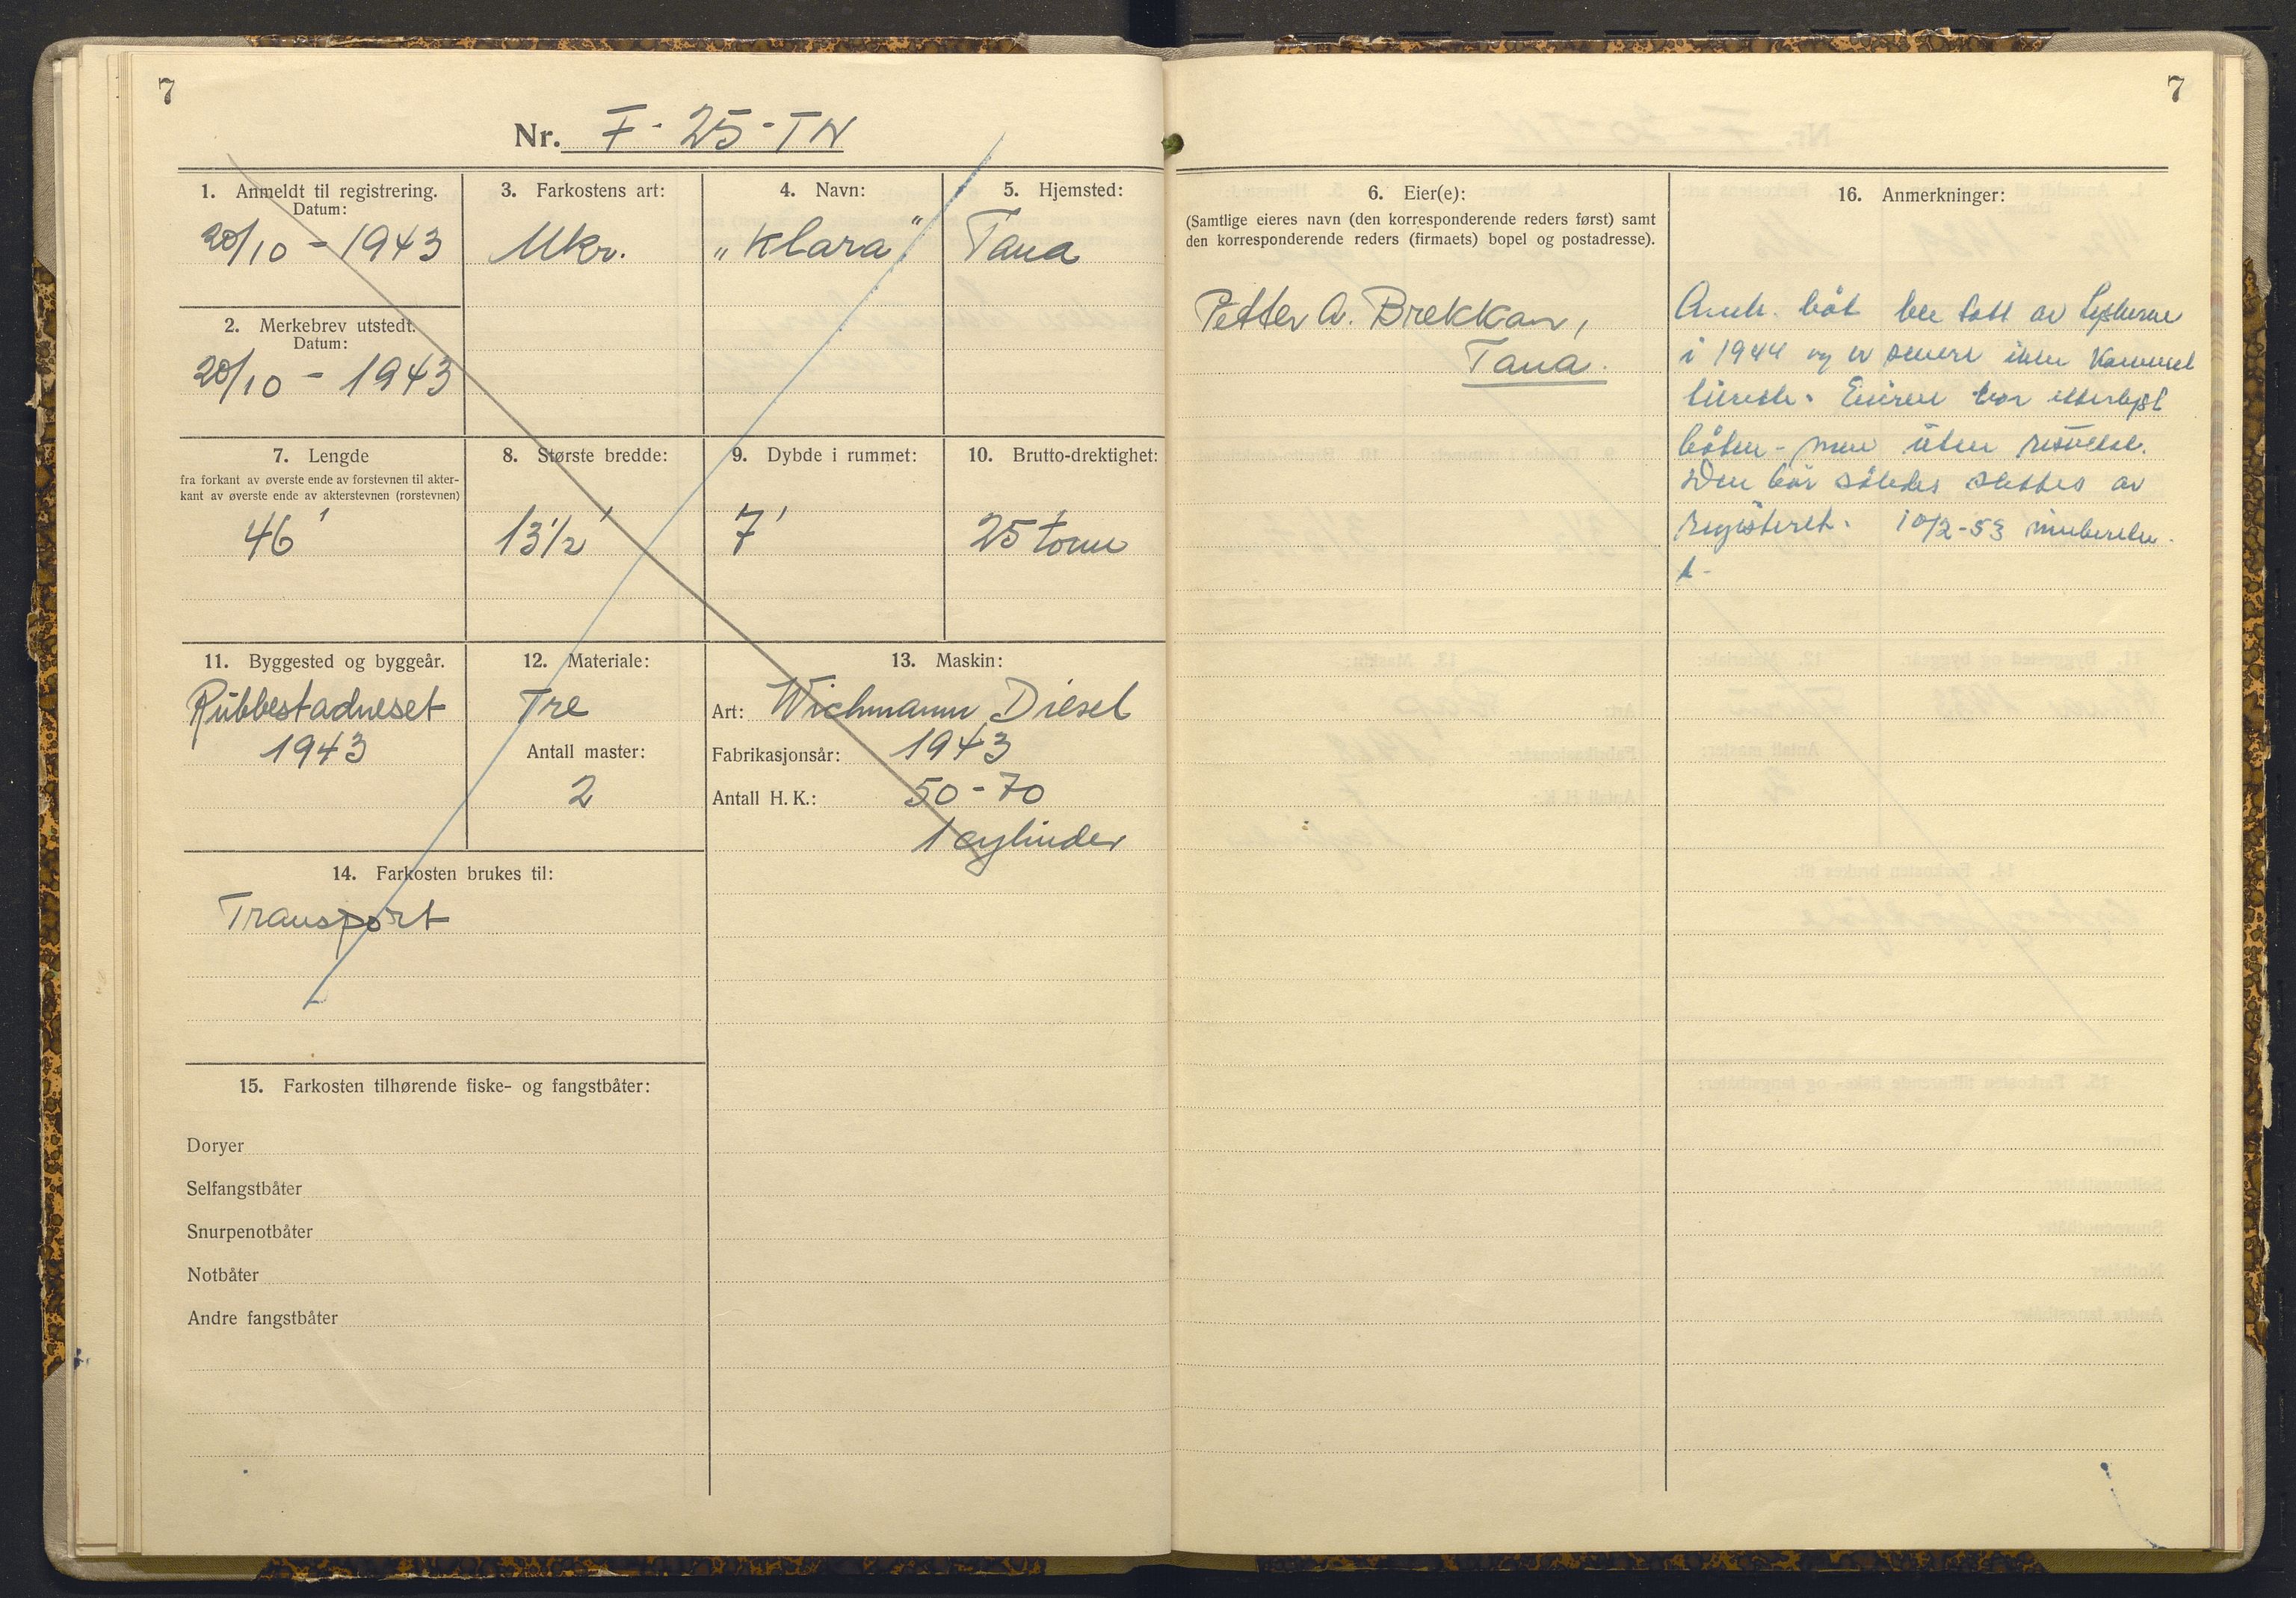 7
Nr. F-25-TN
1. Anmeldt til registrering.
Datum:
20/10 - 1943
2. Merkebrev utstedt.
Datum:
20/10 - 1943
3. Farkostens art:
Mkr.
4. Navn:
"Klara"
5. Hjemsted:
Tana
7. Lengde
fra forkant av øverste ende av forstevnen til akter-
kant av øverste ende av akterstevnen (rorstevnen)
46'
8. Største bredde:
13 1/2'
9. Dybde i rummet:
7'
10. Brutto-drektighet:
25 tonn
11. Byggested og byggeår.
Rubbestadneset
1943
12. Materiale:
Tre
Antall master:
2
13. Maskin:
Art: Wichmann Diesel
Fabrikasjonsår: 1943
Antall H. K.: 50-70
1 cylinder
14. Farkosten brukes til:
Transport
15. Farkosten tilhørende fiske- og fangstbåter:
Doryer
Selfangstbåter
Snurpenotbåter
Notbåter
Andre fangstbåter
7
6. Eier(e):
(Samtlige eieres navn (den korresponderende reders først) samt
den korresponderende reders (firmaets) bopel og postadresse).
Petter A. Brekkan,
Tana.
16. Anmerkninger:
båt ble tatt av tyskerne
i 1944 og er senere ikke kommet
tilrette. Eieren har etterlyst
båten - men uten resultat.
Den bør således slettes av
registeret. 10/2-53